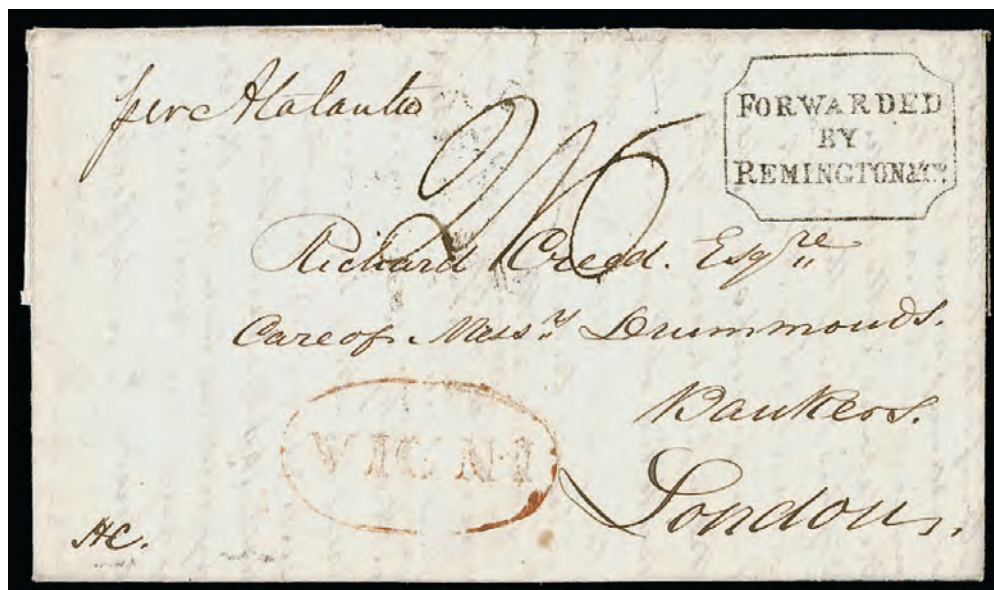 per Atalanta
FORWARDED
BY
REMINGTON & Co.
2/6
Richard Creed. Esqre
Care of Messrs Drummonds.
Bankers.
London.
INDIA
HC.